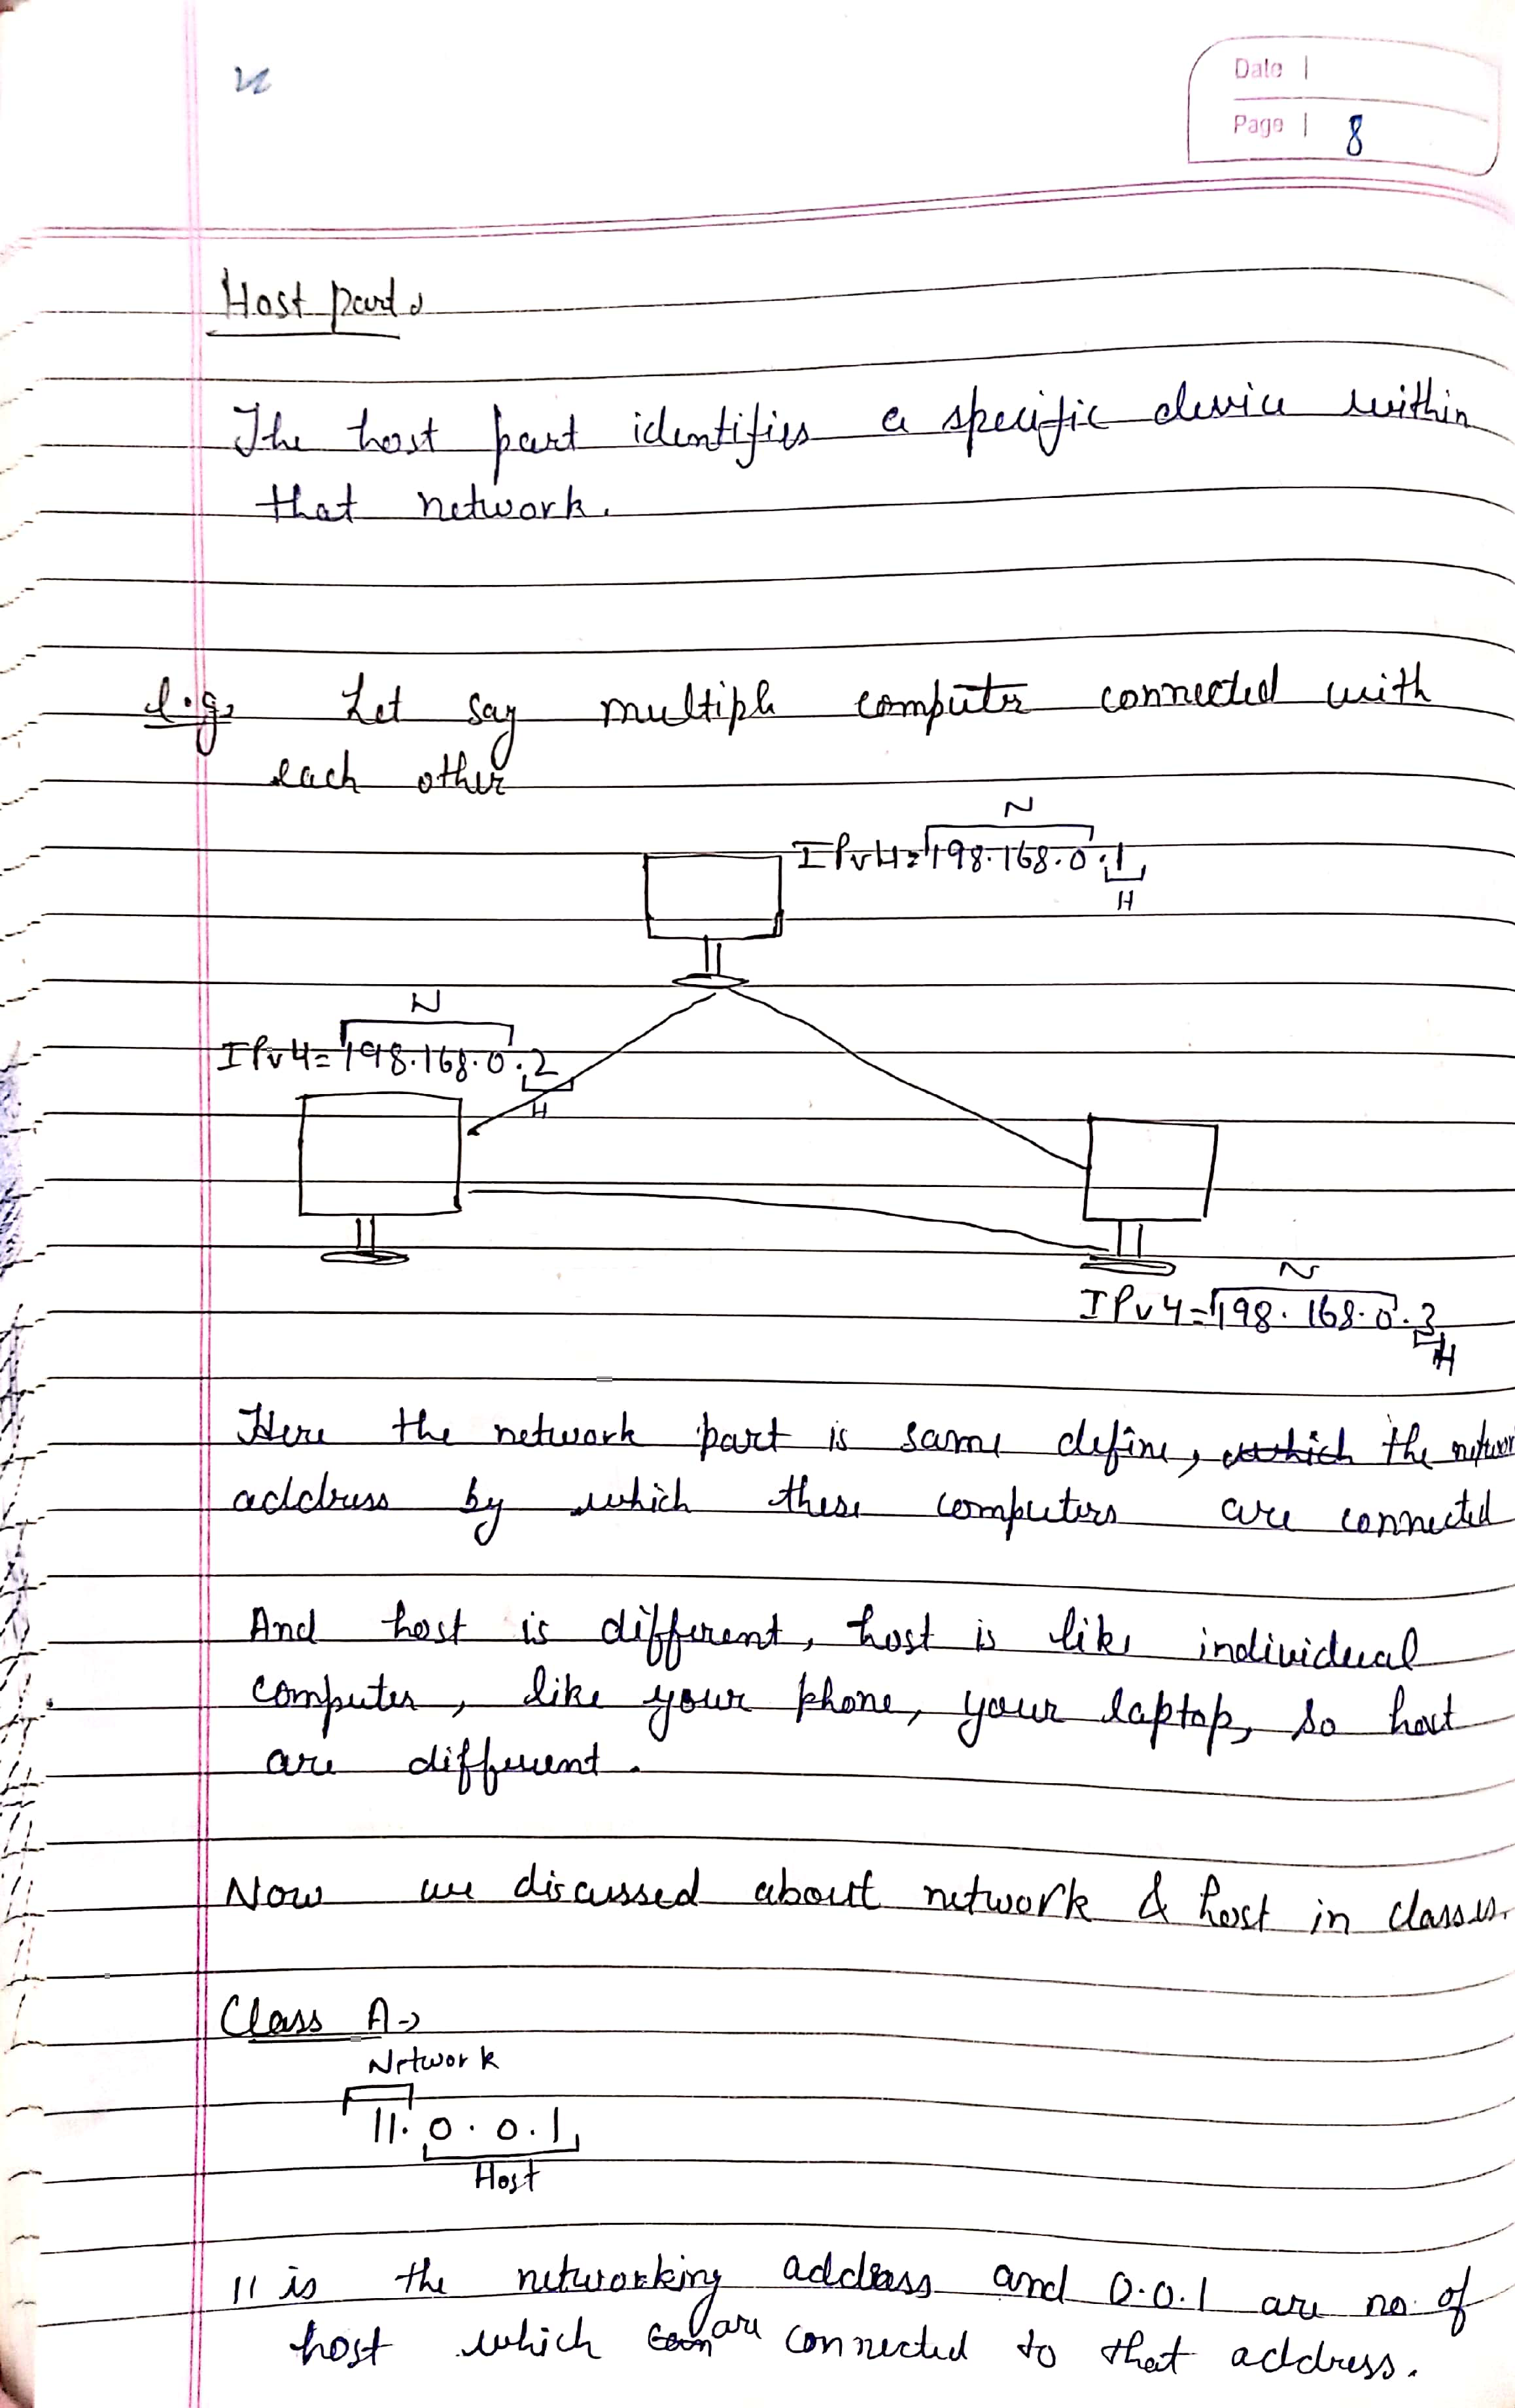 Date
Page 8
Host part
The host part identifies a specific device within
that network.
e.g. Let say multiple computer connected with
each other
N
IPv4=198.168.0.1
H
N
IPv4=198.168.0.2
H
N
IPv4=198.168.0.3
H
Here the network part is same define, which the networ
address by which these computers are connected
And host is different, host is like individual
computer, like your phone, your laptop, so host
are different.
Now we discussed about network & host in classes.
Class A→
Network
11.0.0.1
Host
11 is the networking address and 0.0.1 are no. of
host which are connected to that address.